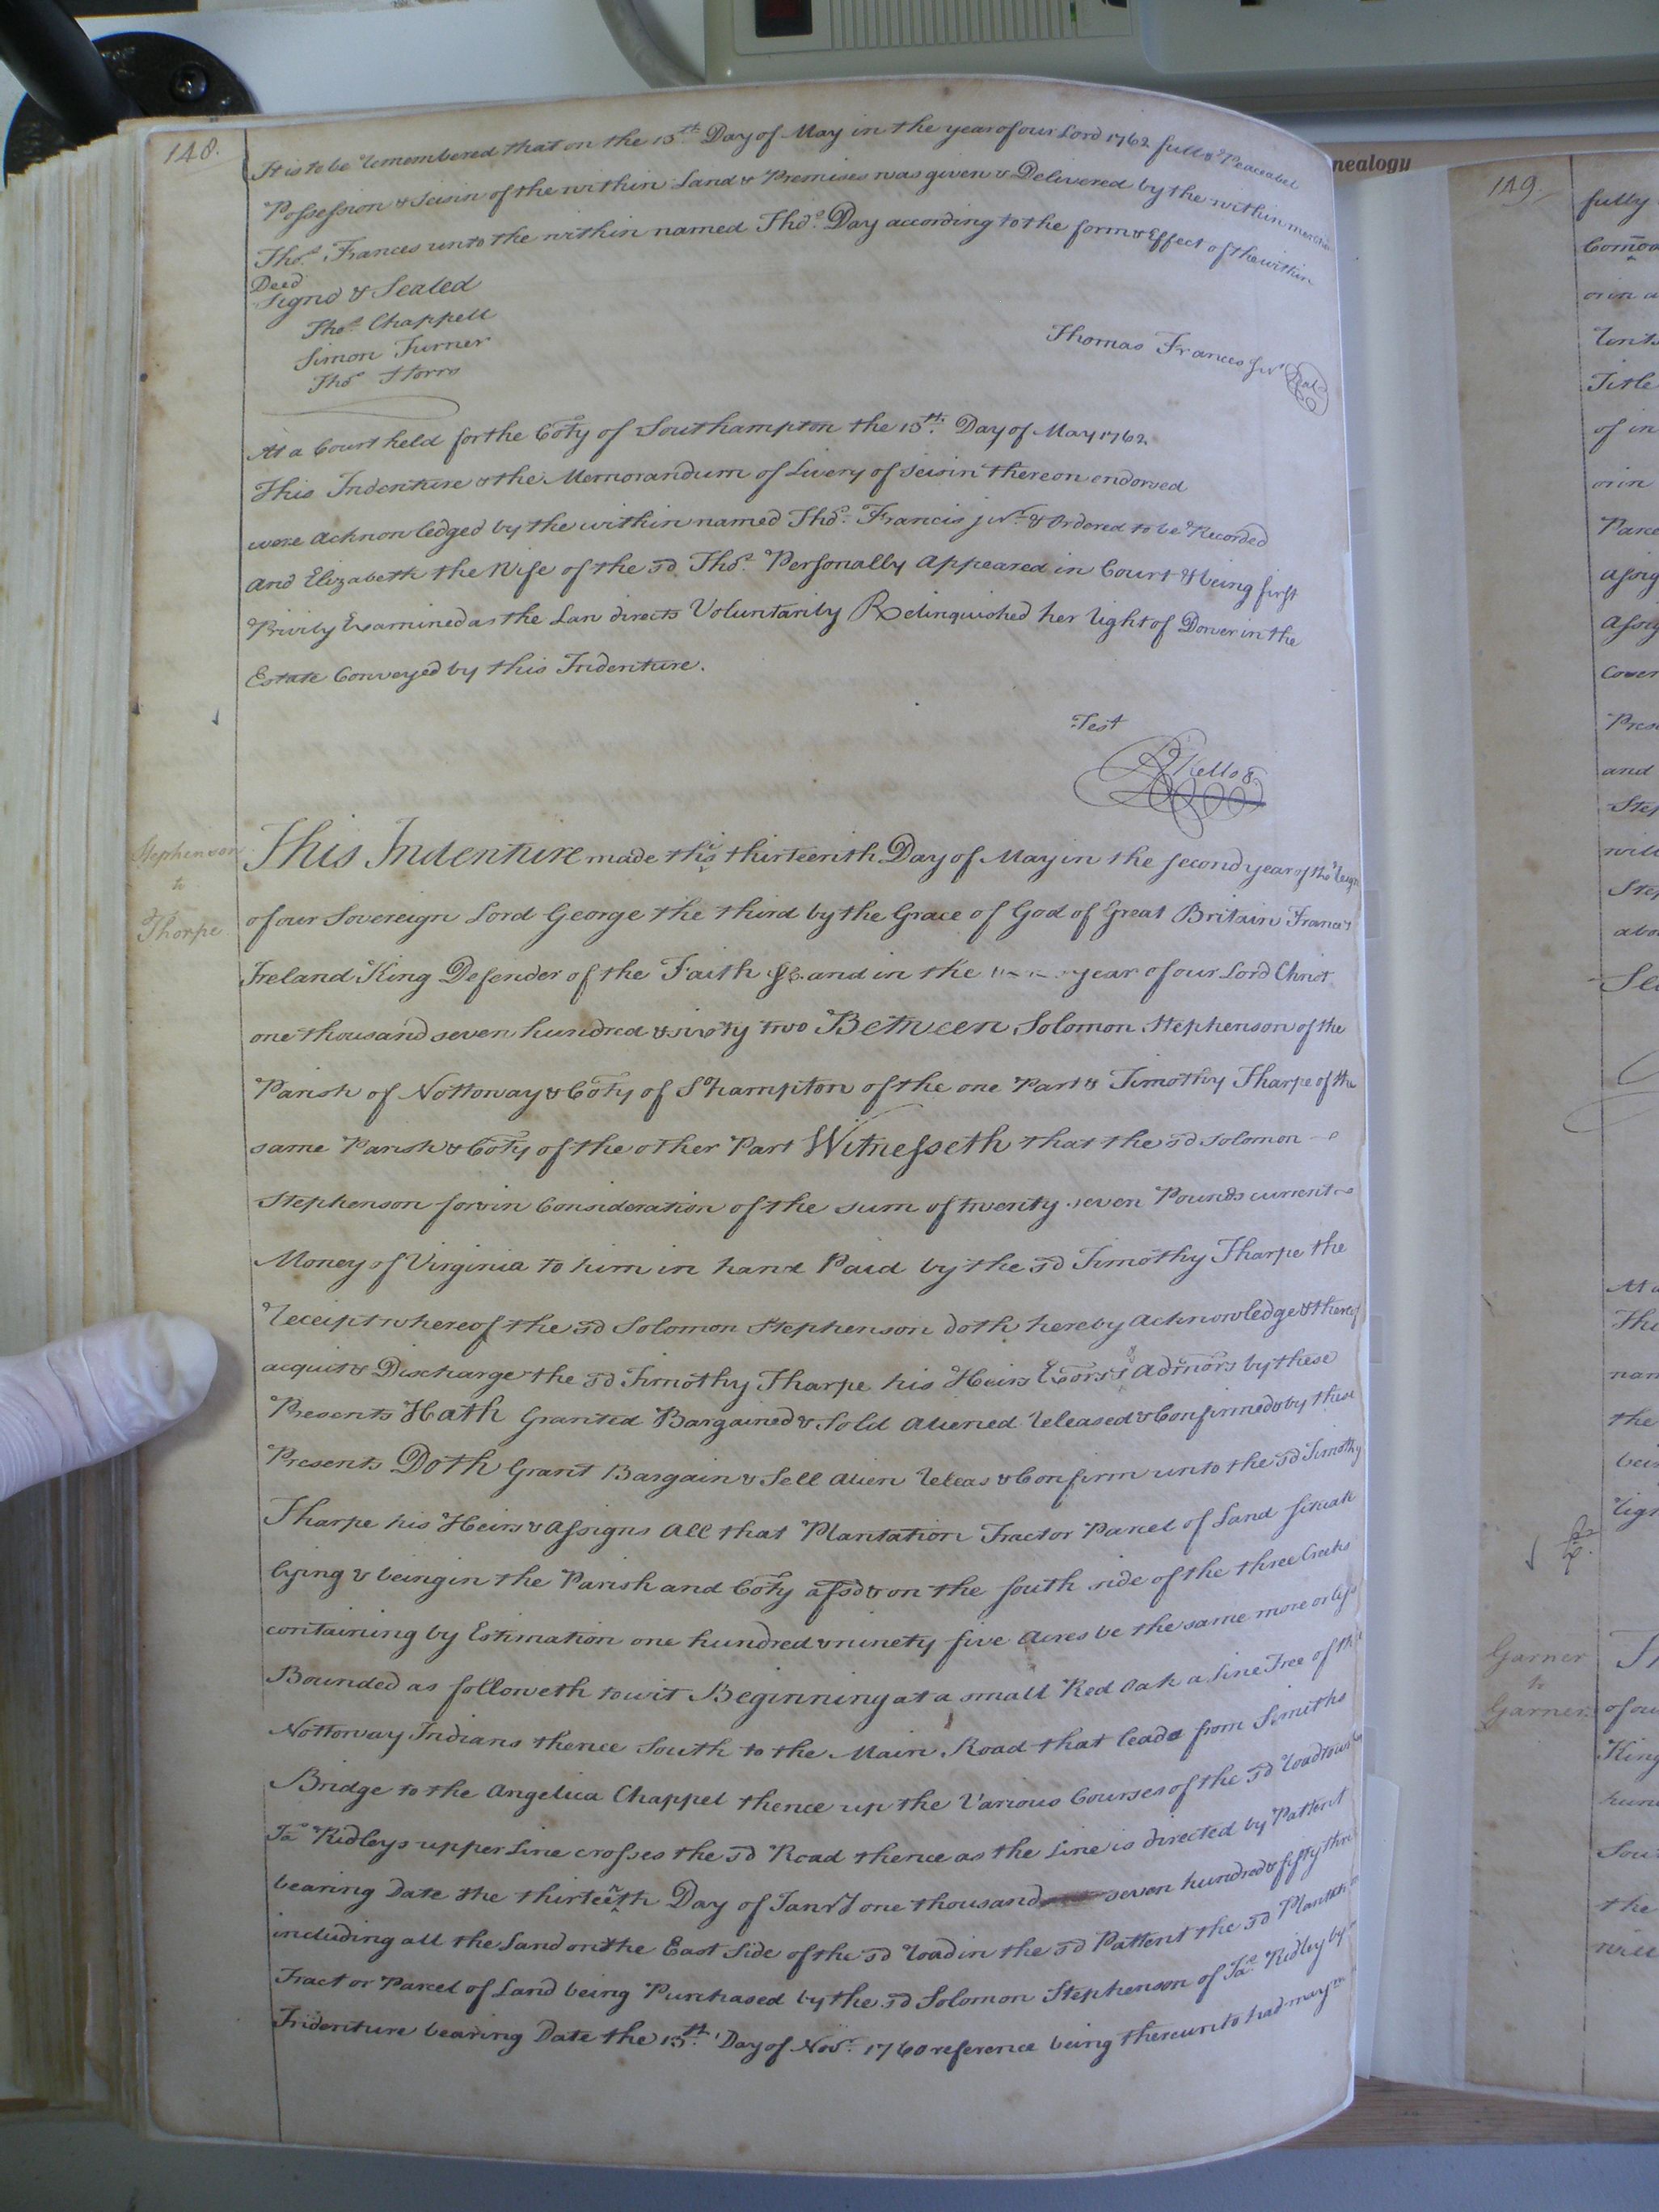 148.
It is to be Remembered that on the 13th. Day of May in the year of our Lord 1762 full & Peaceabel
Possession & Seisin of the within Land & Premises was given & Delivered by the within
Thos. Frances unto the within named Thos. Day according to the form & Effect of the within
Deed
Signd & Sealed
Thos. Chappell
Simon Turner
Thos
Thomas Frances Junr Seal
At a Court held for the Coty of Southampton the 13th. Day of May 1762
This Indenture & the Memorandum of Livery of Seisin thereon endorsed
were Acknowledged by the within named Thos. Francis junr. & Ordered to be Recorded
And Elizabeth the Wife of the sd Thos. Personally Appeared in Court & being first
Privily Examined as the Law directs Voluntarily Relinquished her Right of Dower in the
Estate Conveyed by this Indenture.
Test
R Kello
Stephenson
to
Thorpe
This Indenture made this thirteenth Day of May in the second year of the Reign
of our Sovereign Lord George the third by the Grace of God of Great Britain France &
Ireland King Defender of the Faith &c. and in the year of our Lord Christ
one thousand seven hundred & sixty two Between Solomon Stephenson of the
Parish of Nottoway & Coty of Sohampton of the one Part & Timothy Tharpe of the
same Parish & Coty of the other Part Witnesseth that the sd Solomon
Stephenson for & in Consideration of the sum of twenty seven Pounds current
Money of Virginia to him in hand Paid by the sd Timothy Tharpe the
Receipt whereof the sd Solomon Stephenson doth hereby Acknowledge & thereof
acquit & Discharge the sd Timothy Tharpe his Heirs Exors & Admors by these
Presents Hath Granted Bargained & Sold Aliened Released & Confirmed & by these
Presents Doth Grant Bargain & Sell Alien Releas & Confirm unto the sd Timothy
Tharpe his Heirs & Assigns All that Plantation Tract or Parcel of Land situate
lying & being in the Parish and Coty afsd & on the south side of the three Creeks
containing by Estimation one hundred & ninety five Acres be the same more or less
Bounded as followeth towit Beginning at a small Red Oak a Line Tree of the
Nottoway Indians thence South to the Main Road that leads from Smiths
Bridge to the Angelica Chappel thence up the Various Courses of the sd Road to
Jas Ridleys upper Line crosses the sd Road thence as the Line is directed by Pattent
bearing Date the thirteenth Day of Janry one thousand seven hundred & fifty three
including all the Land on the East Side of the sd Road in the sd Pattent the sd
Tract or Parcel of Land being Purchased by the sd Solomon Stephenson of Jas. Ridley by
Indenture bearing Date the 13th. Day of Novr. 1760 reference being thereunto had may
nealogy
149.
fully
or in a
Title
of in
or in
and
Step
will
Garner
to
Garner
of our
King
the
will